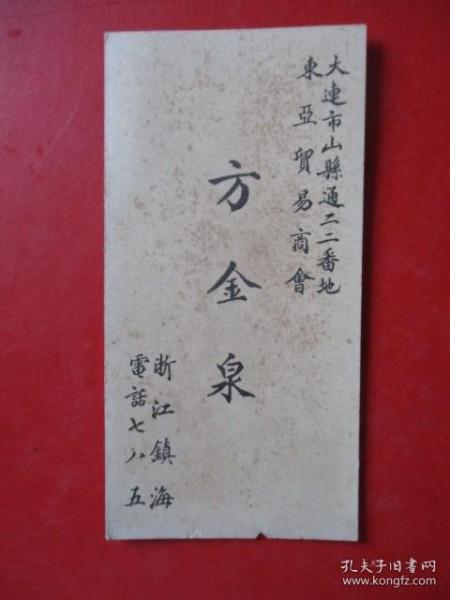 大連市山縣通二二番地
東亞貿易商會
方金泉
浙江鎮海
電話七八五
孔夫子旧书网
www.kongfz.com